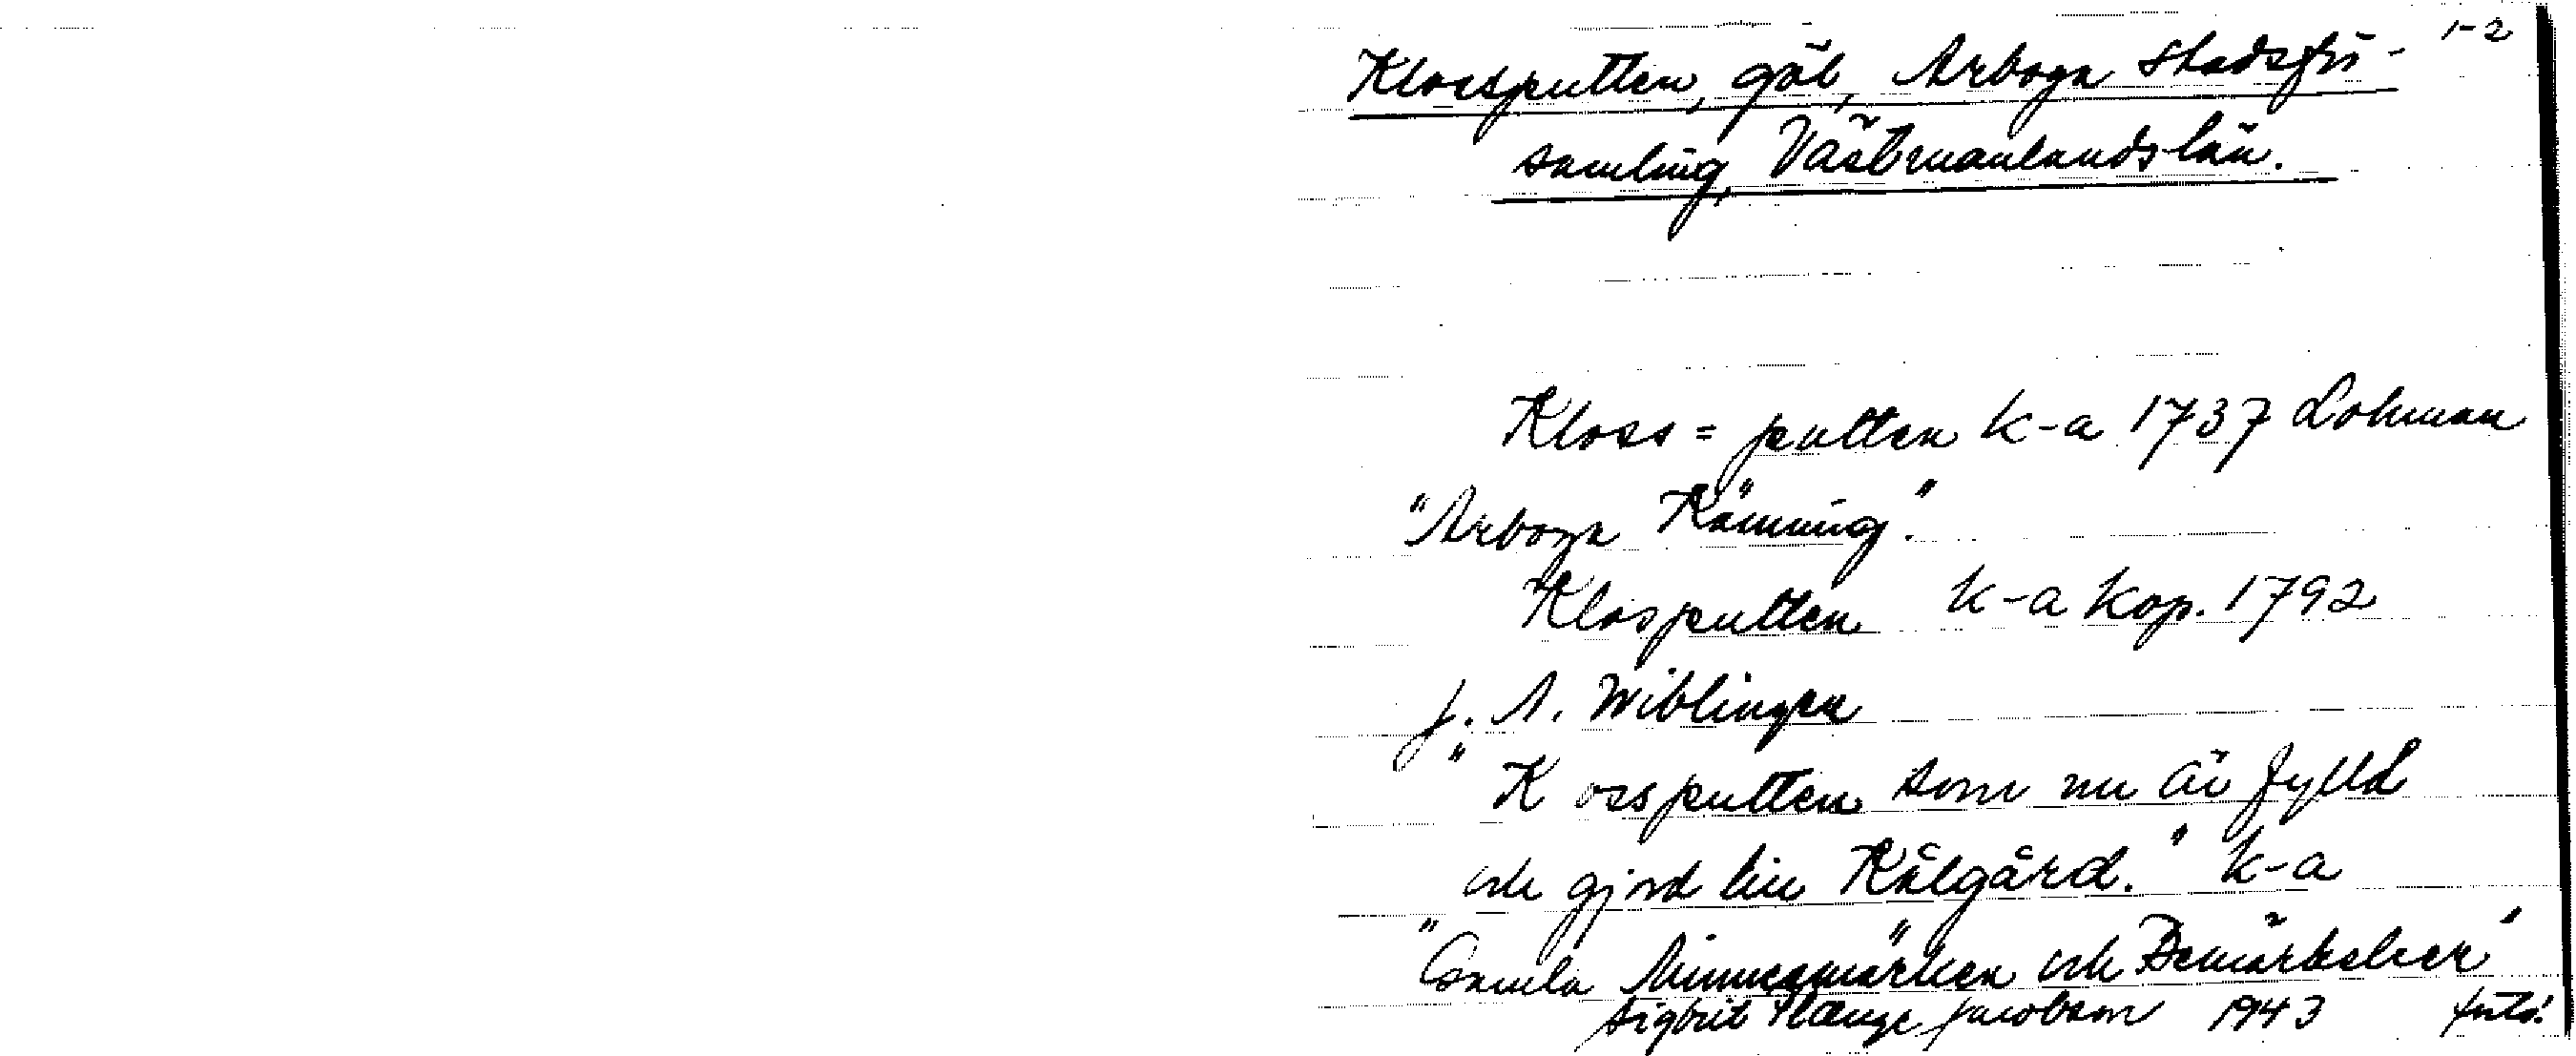 1-2
Klossputten, göl, Arboga Stadsför-
samling, Västmanlands län.
Kloss=putten k-a 1737 Lohman
"Arboga Känning".
Klosputten k-a kop. 1792
J. A. Wiblingen
"K ossputten som nu är fylld
och gjord till Kålgård." k-a
"Gamla Minnesmärken och Bemärkelser"
Sigbrit Plænge Jacobson 1943 forts.